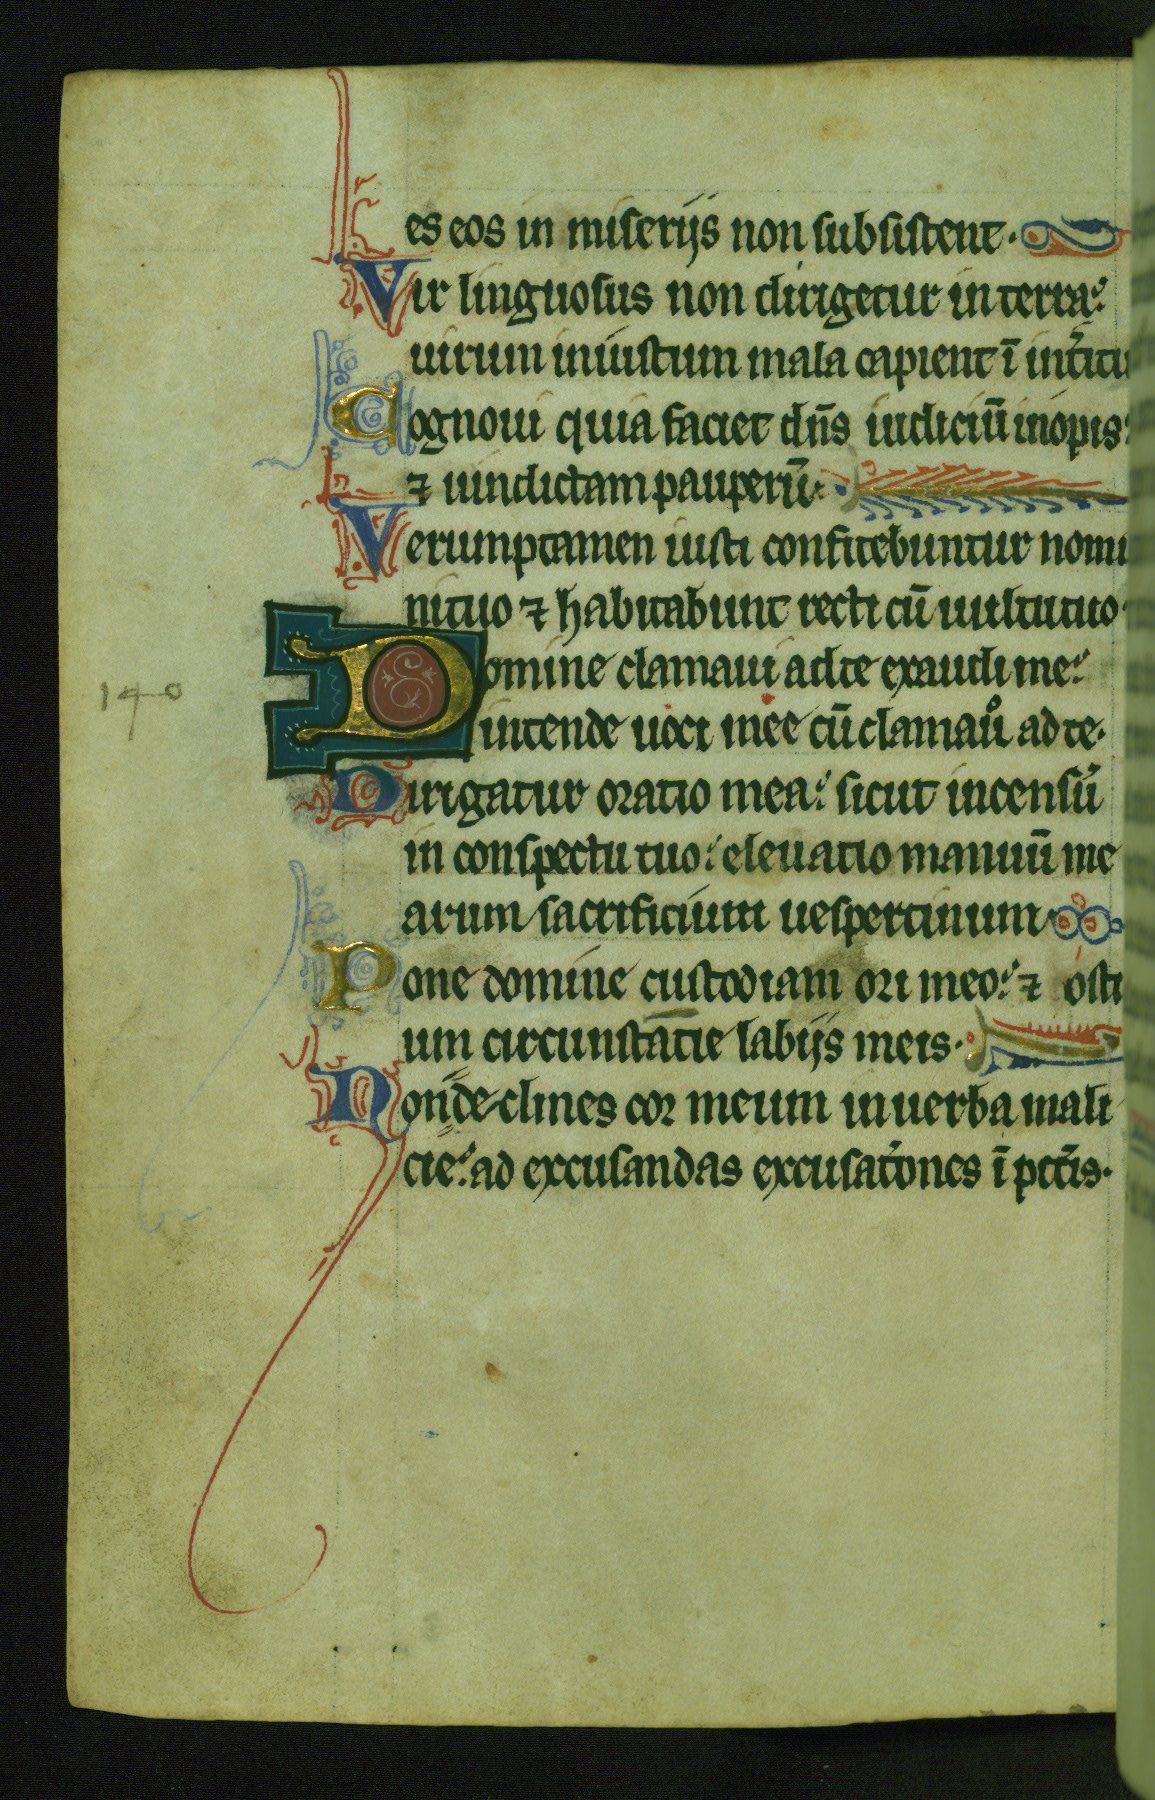 es eos in miserijs non subsistent.
Vir linguosus non dirigetur in terra:
uirum iniustum mala capient ī int̄itu
Cognoui quia faciet dn̄s iudiciū inopis:
⁊ uindictam pauperū.
Verumptamen iusti confitebuntur nomi
ni tuo ⁊ habitabunt recti cū uultu tuo.
Domine clamaui ad te exaudi me:
140
intende uoci mee cū clamau̾o ad te.
Dirigatur oratio mea: sicut incensū
in conspectu tuo: eleuatio manuū me
arum sacrificium uespertinum.
Pone domine custodiam ori meo: ⁊ osti
um circunstācie labijs meis.
Non declines cor meum in uerba mali
cie: ad excusandas excusat̄ones ī pcc̄is.